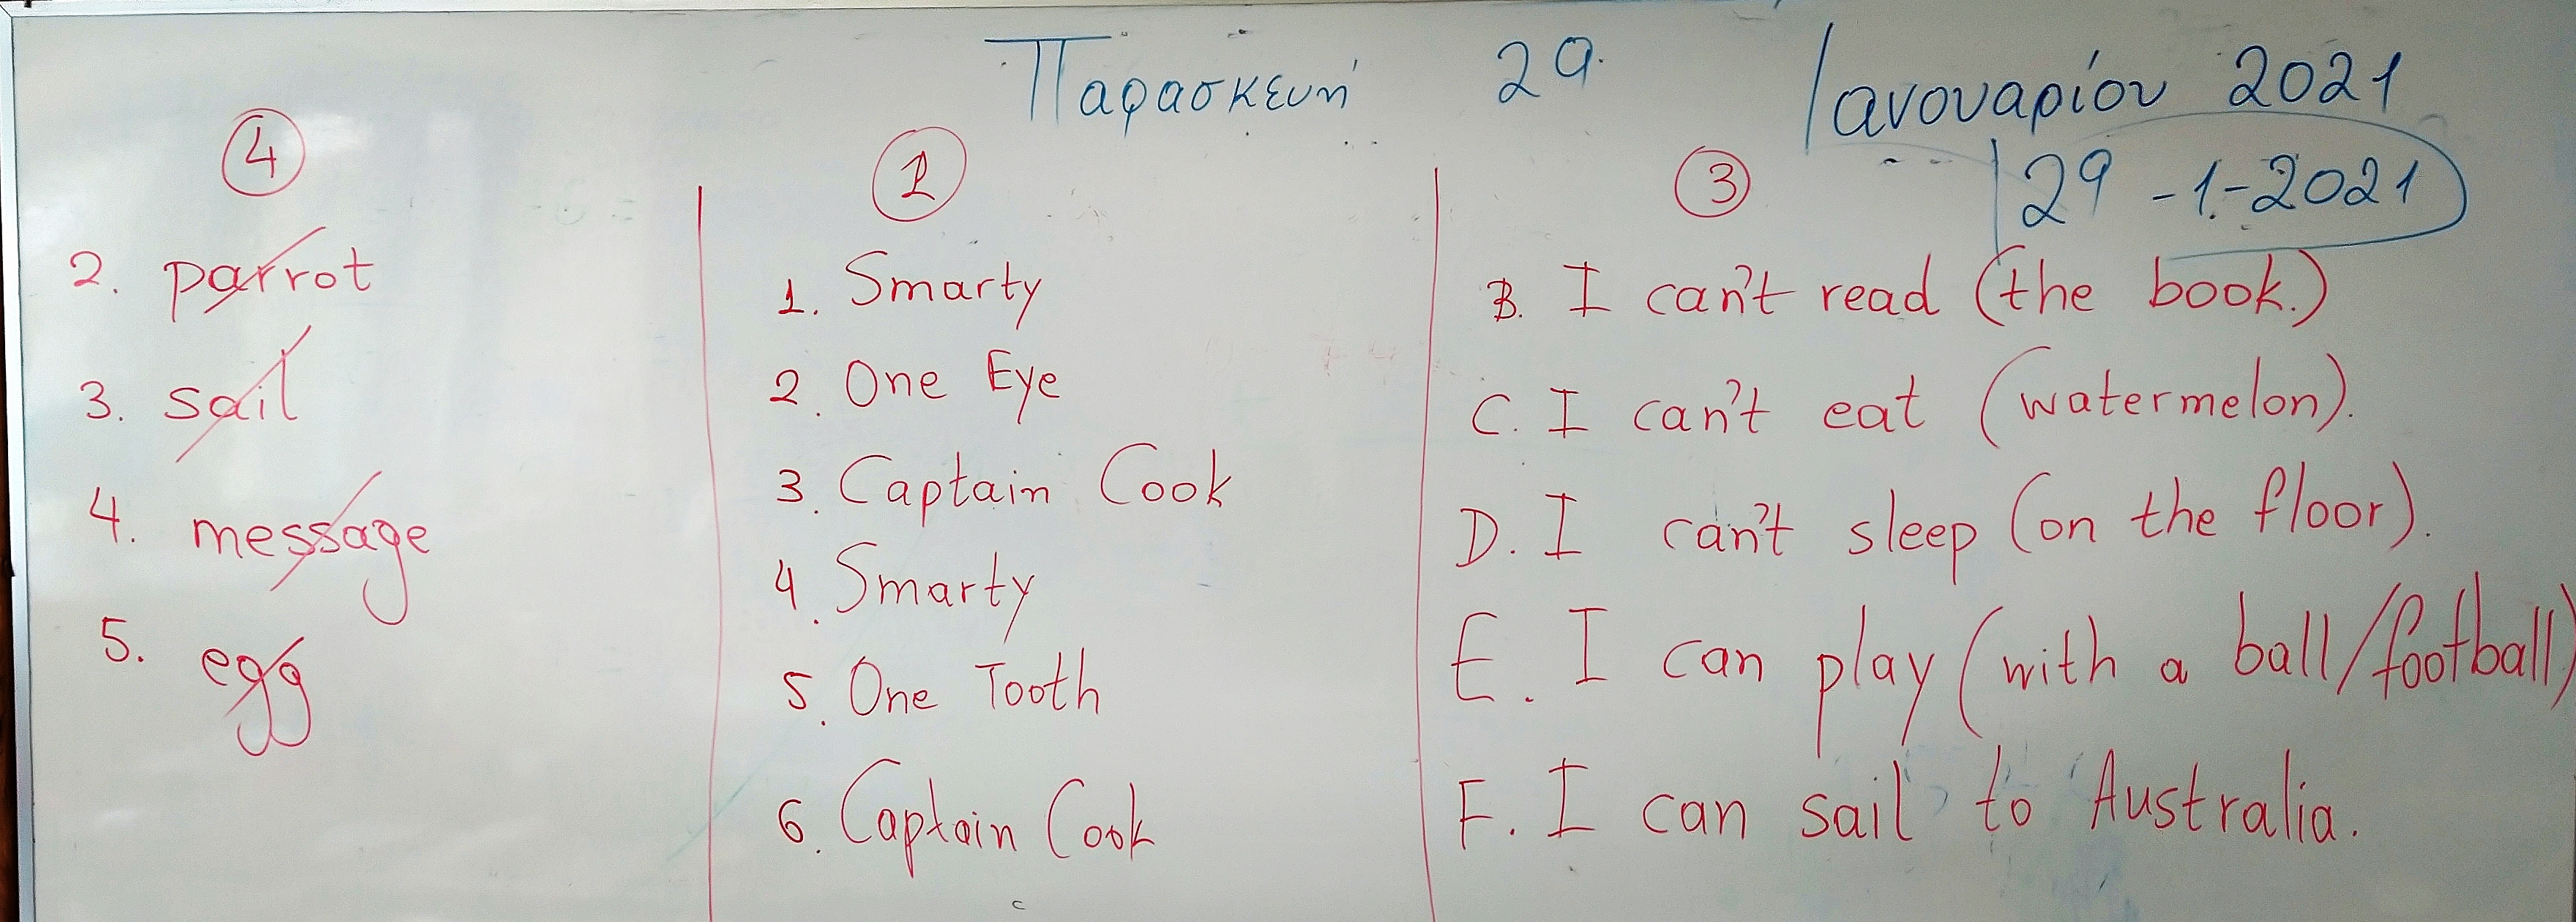 Παρασκευή 29 Ιανουαρίου 2021
29-1-2021
4
2. parrot
3. sail
4. message
5. egg
1
1. Smarty
2. One Eye
3. Captain Cook
4. Smarty
5. One Tooth
6. Captain Cook
3
B. I can't read (the book.)
C. I can't eat (watermelon).
D. I can't sleep (on the floor).
E. I can play (with a ball/football)
F. I can sail to Australia.